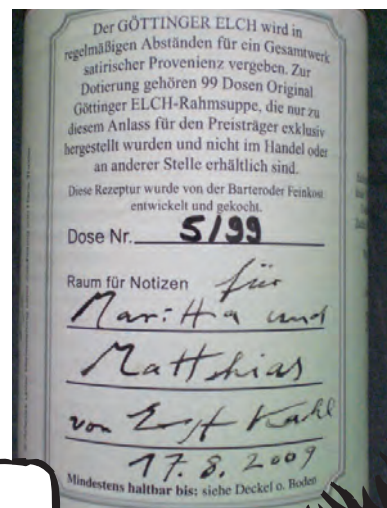 Der GÖTTINGER ELCH wird in
regelmäßigen Abständen für ein Gesamtwerk
satirischer Provenienz vergeben. Zur
Dotierung gehören 99 Dosen Original
Göttinger ELCH-Rahmsuppe, die nur zu
diesem Anlass für den Preisträger exklusiv
hergestellt wurden und nicht im Handel oder
an anderer Stelle erhältlich sind.
Diese Rezeptur wurde von der Barteroder Feinkost
entwickelt und gekocht.
Dose Nr. 5/99
Raum für Notizen für
Maritta und
Matthias
von Ernst Kahl
17.8.2009
Mindestens haltbar bis: siehe Deckel o. Boden